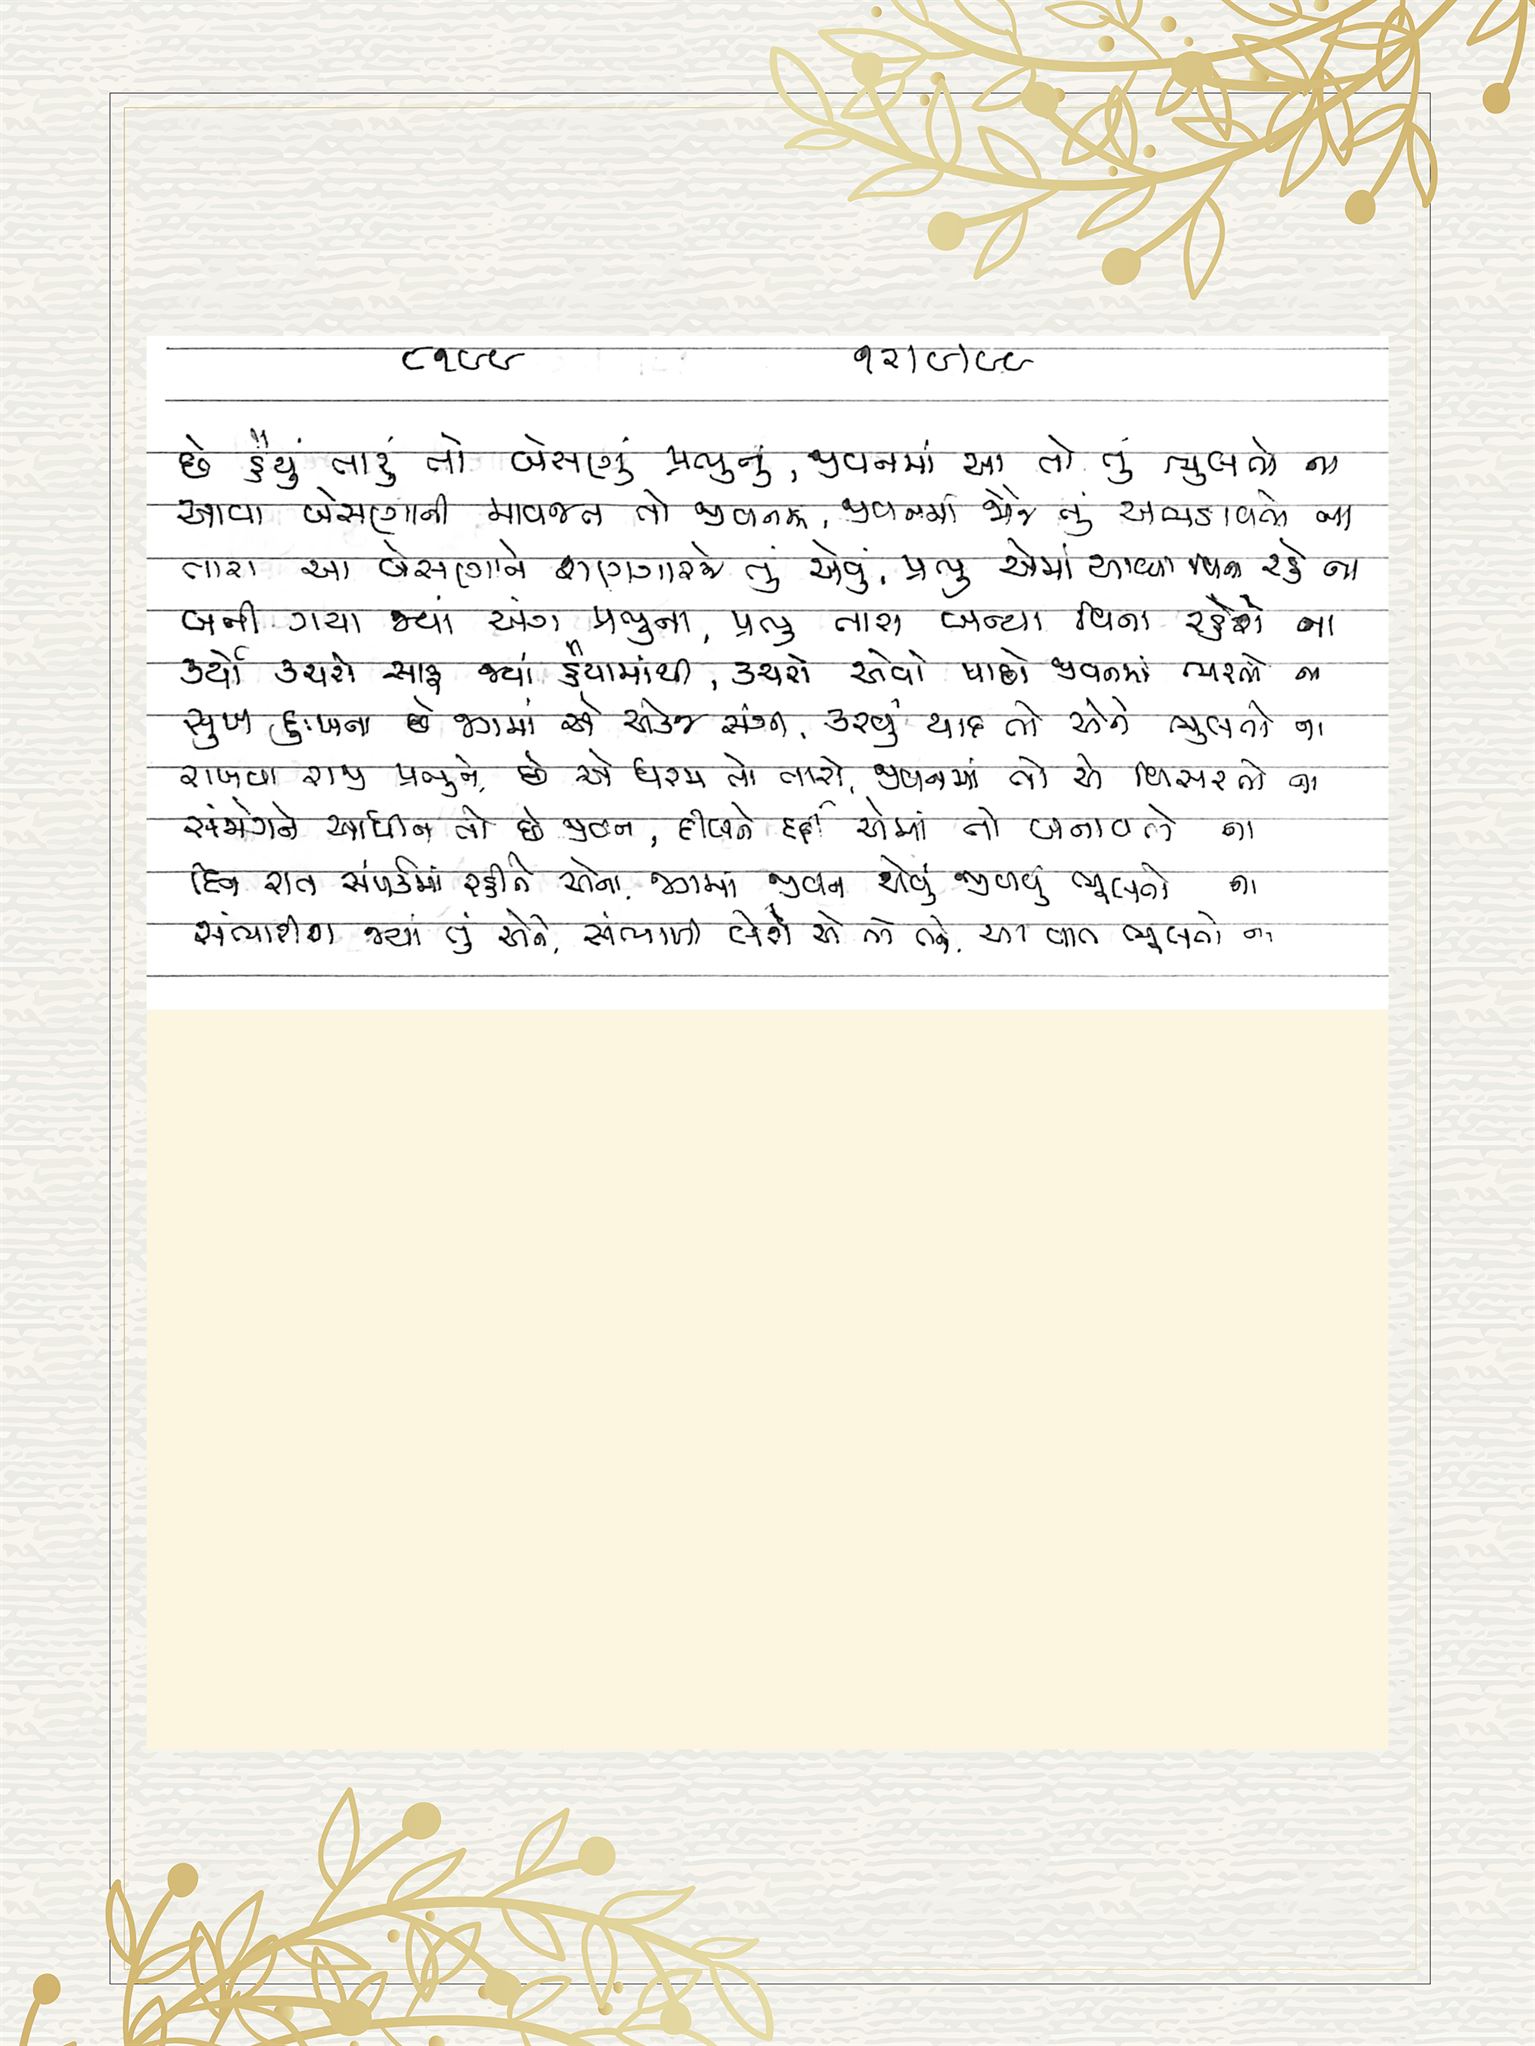 ૮૧૯૯ ૧૨/૯/૯૯
છે હૈયું તારું તો બેસણું પ્રભુનું, જીવનમાં આ તો તું ભુલતો ના
આવા બેસણાની માવજત તો જીવનમાં, જીવનમાં જોજે તું અભડાવતો ના
તારા આ બેસણાને શણગારજે તું એવું, પ્રભુ એમાં આવ્યા વિના રહે ના
બની ગયા જ્યાં અંગ પ્રભુના, પ્રભુ તારા બન્યા વિના રહેશે ના
કર્યો કચરો સાફ જ્યાં હૈયામાંથી, કચરો એવો પાછો જીવનમાં ભરતો ના
સુખ દુઃખના છે જગમાં એ એકજ સંગી, કરવું યાદ તો એને ભુલતો ના
રાખવા રાજી પ્રભુને, છે એ ધરમ તો તારો, જીવનમાં તો એ વિસરતો ના
સંજોગને આધીન તો છે જીવન, દીલને દર્દી એમાં તો બનાવતો ના
દિન રાત સંપર્કમાં રહીને એના, જગમાં જીવન એવું જીવવું ભૂલતો ના
સંભારીશ જ્યાં તું એને, સંભાળી લેશે એ તો તને, આ વાત ભૂલતો ના